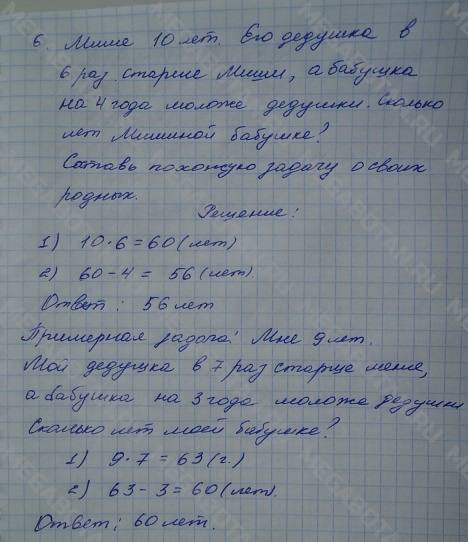 6. Мише 10 лет. Его дедушка в
6 раз старше Миши, а бабушка
на 4 года моложе дедушки. Сколько
лет Мишиной бабушке?
Составь похожую задачу о своих
родных.
Решение:
1) 10·6=60 (лет)
2) 60-4= 56 (лет).
Ответ: 56 лет
Примерная задача: Мне 9 лет.
Мой дедушка в 7 раз старше меня,
а бабушка на 3 года моложе дедушки
Сколько лет моей бабушке?
1) 9·7=63 (г.)
2) 63-3=60 (лет).
Ответ: 60 лет.